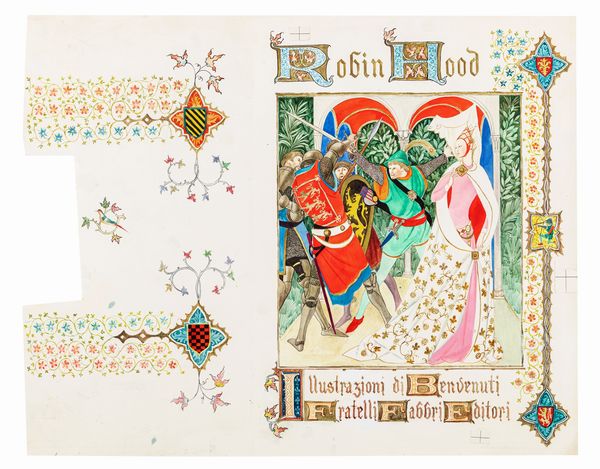 Robin Hood
Illustrazioni di Benvenuti
Fratelli Fabbri Editori